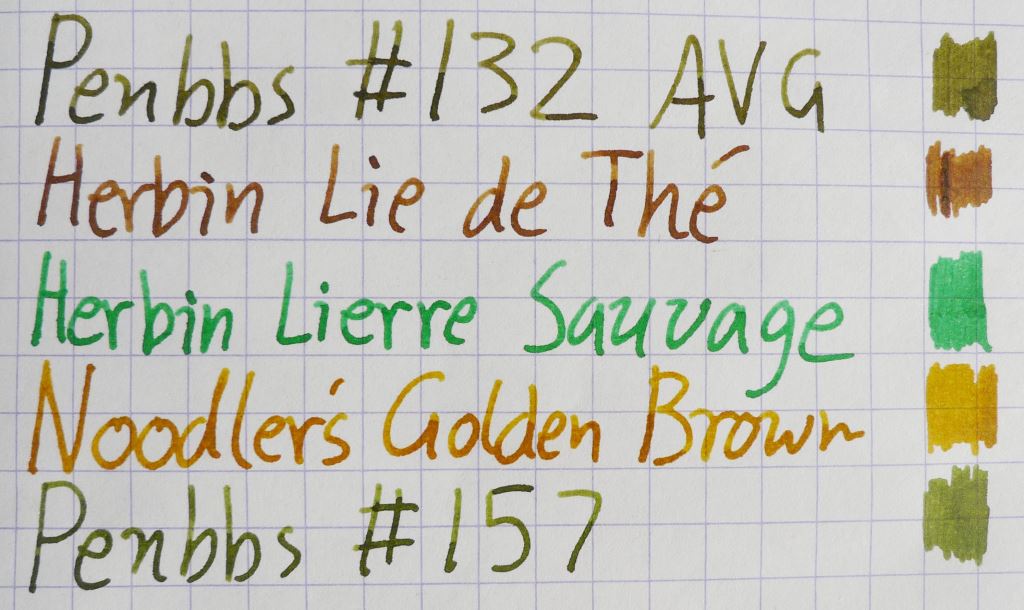 Penbbs #132 AVG
Herbin Lie de Thé
Herbin Lierre Sauvage
Noodler's Golden Brown
Penbbs #157